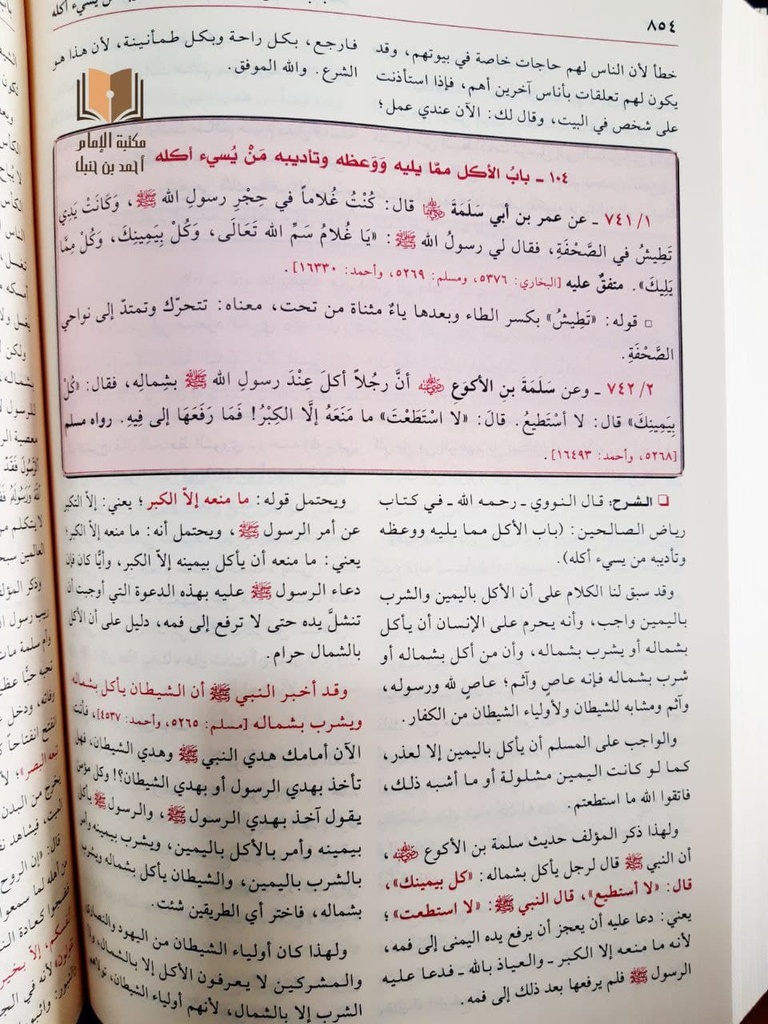 ٨٥٤
خطأ لأن الناس لهم حاجات خاصة في بيوتهم، وقد
يكون لهم تعلقات بأناس آخرين أهم، فإذا استأذنت
على شخص في البيت، وقال لك: الآن عندي عمل؛
فارجع، بكل راحة وبكل طمأنينة، لأن هذا هو
الشرع. والله الموفق.
مكتبة الإمام
أحمد بن حنبل
١٠٤ ـ بابُ الأكل ممّا يليه وَوَعظه وتأديبه مَنْ يُسيء أكله
٧٤١/١ ـ عن عمر بن أبي سَلَمَةَ ﵄ قال: كُنْتُ غُلاماً في حِجْرِ رسولِ الله ﷺ، وَكَانَتْ يَدِي
تَطِيشُ في الصَّحْفَةِ، فقال لي رسولُ الله ﷺ: «يَا غُلامُ سَمِّ الله تَعَالَى، وَكُلْ بِيَمِينِكَ، وَكُلْ مِمَّا
يَلِيكَ». متفقٌ عليه [البخاري: ٥٣٧٦، ومسلم: ٥٢٦٩، وأحمد: ١٦٣٣٠].
□ قوله: «تَطِيشُ» بكسر الطاء وبعدها ياءٌ مثناة من تحت، معناه: تتحرّك وتمتدّ إلى نواحي
الصَّحْفَةِ.
٧٤٢/٢ ـ وعن سَلَمَةَ بن الأكوَعِ ﵁ أنَّ رجُلاً أكلَ عِنْدَ رسولِ الله ﷺ بشِمالِه، فقال: «كُلْ
بِيَمِينِكَ» قال: لا أسْتَطِيعُ. قالَ: «لا اسْتَطَعْتَ» ما مَنَعَهُ إلَّا الكِبْرُ! فَمَا رَفَعَهَا إلى فِيهِ. رواه مسلم
[٥٢٦٨، وأحمد: ١٦٤٩٣].
❑ الشرح: قال النووي ـ رحمه الله ـ في كتاب
رياض الصالحين: (باب الأكل مما يليه ووعظه
وتأديبه من يسيء أكله).
وقد سبق لنا الكلام على أن الأكل باليمين والشرب
باليمين واجب، وأنه يحرم على الإنسان أن يأكل
بشماله أو يشرب بشماله، وأن من أكل بشماله أو
شرب بشماله فإنه عاصٍ وآثم؛ عاصٍ لله ورسوله،
وآثم ومشابه للشيطان ولأولياء الشيطان من الكفار.
والواجب على المسلم أن يأكل باليمين إلا لعذر،
كما لو كانت اليمين مشلولة أو ما أشبه ذلك،
فاتقوا الله ما استطعتم.
ولهذا ذكر المؤلف حديث سلمة بن الأكوع ﵁،
أن النبي ﷺ قال لرجل يأكل بشماله: «كل بيمينك»،
قال: «لا أستطيع»، قال النبي ﷺ: «لا استطعت»؛
يعني: دعا عليه أن يعجز أن يرفع يده اليمنى إلى فمه،
لأنه ما منعه إلا الكبر ـ والعياذ بالله ـ فدعا عليه
الرسول ﷺ فلم يرفعها بعد ذلك إلى فمه.
ويحتمل قوله: ما منعه إلاّ الكبر؛ يعني: إلاّ التكبر
عن أمر الرسول ﷺ، ويحتمل أنه: ما منعه إلاّ الكبر؛
يعني: ما منعه أن يأكل بيمينه إلاّ الكبر، وأيًّا كان فإن
دعاء الرسول ﷺ عليه بهذه الدعوة التي أوجبت أن
تنشلَّ يده حتى لا ترفع إلى فمه، دليل على أن الأكل
بالشمال حرام.
وقد أخبر النبي ﷺ أن الشيطان يأكل بشماله
ويشرب بشماله [مسلم: ٥٢٦٥، وأحمد: ٤٥٣٧]، فأنت
الآن أمامك هدي النبي ﷺ وهدي الشيطان، فهل
تأخذ بهدي الرسول أو بهدي الشيطان؟! وكل مؤمن
يقول آخذ بهدي الرسول ﷺ، والرسول ﷺ يأكل
بيمينه وأمر بالأكل باليمين، ويشرب بيمينه وأمر
بالشرب باليمين، والشيطان يأكل بشماله ويشرب
بشماله، فاختر أي الطريقين شئت.
ولهذا كان أولياء الشيطان من اليهود والنصارى
والمشركين لا يعرفون الأكل إلا بالشمال، ولا
الشرب إلا بالشمال، لأنهم أولياء الشيطان،